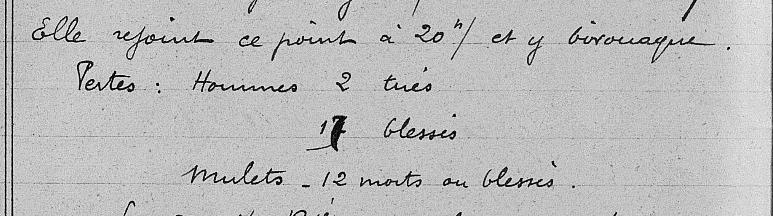 Elle rejoint ce point à 20h/ et y bivouaque.
Pertes : Hommes 2 tués
17 blessés
Mulets - 12 morts ou blessés.